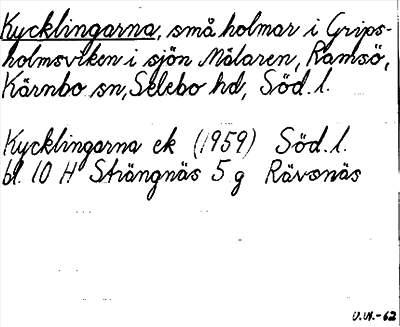 Kycklingarna, små holmar i Grips-
holmsviken i sjön Mälaren, Ramsö,
Kärnbo sn, Selebo hd, Söd. l.
Kycklingarna ek (1959) Söd. l.
bl. 10 H Strängnäs 5 g Rävsnäs
U.M.-62